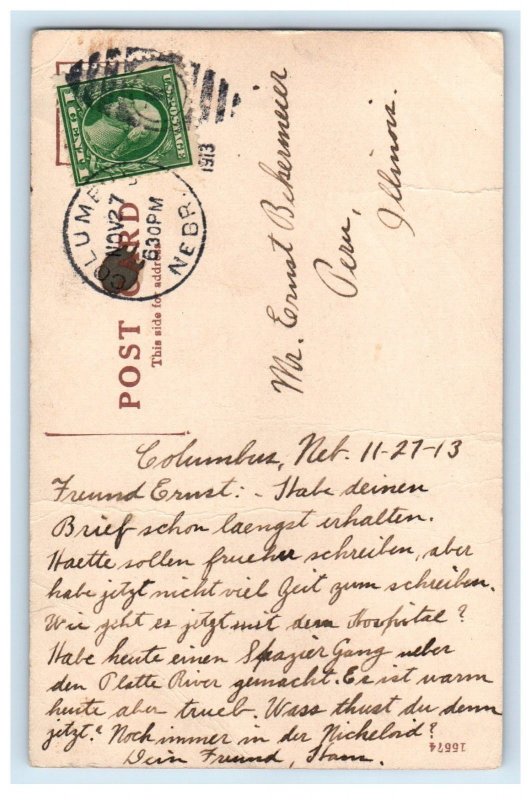 U.S.POSTAGE
1 CENT 1
NOV 27
630PM
1913
NEBR.
POST CARD
This side for address
Mr. Ernst Bekermeier
Peru,
Illinois.
Columbus, Neb. 11-27-13
Freund Ernst: - Habe deinen
Brief schon laengst erhalten.
Haette sollen frueher schreiben, aber
habe jetzt nicht viel Zeit zum schreiben.
Wie geht es jetzt mit dem Hospital?
Habe heute einen Spazier Gang ueber
den Platte River gemacht. Es ist warm
heute aber trueb. Wass thust du denn
jetzt? Noch immer in der Nickeloid?
Dein Freund,
15574